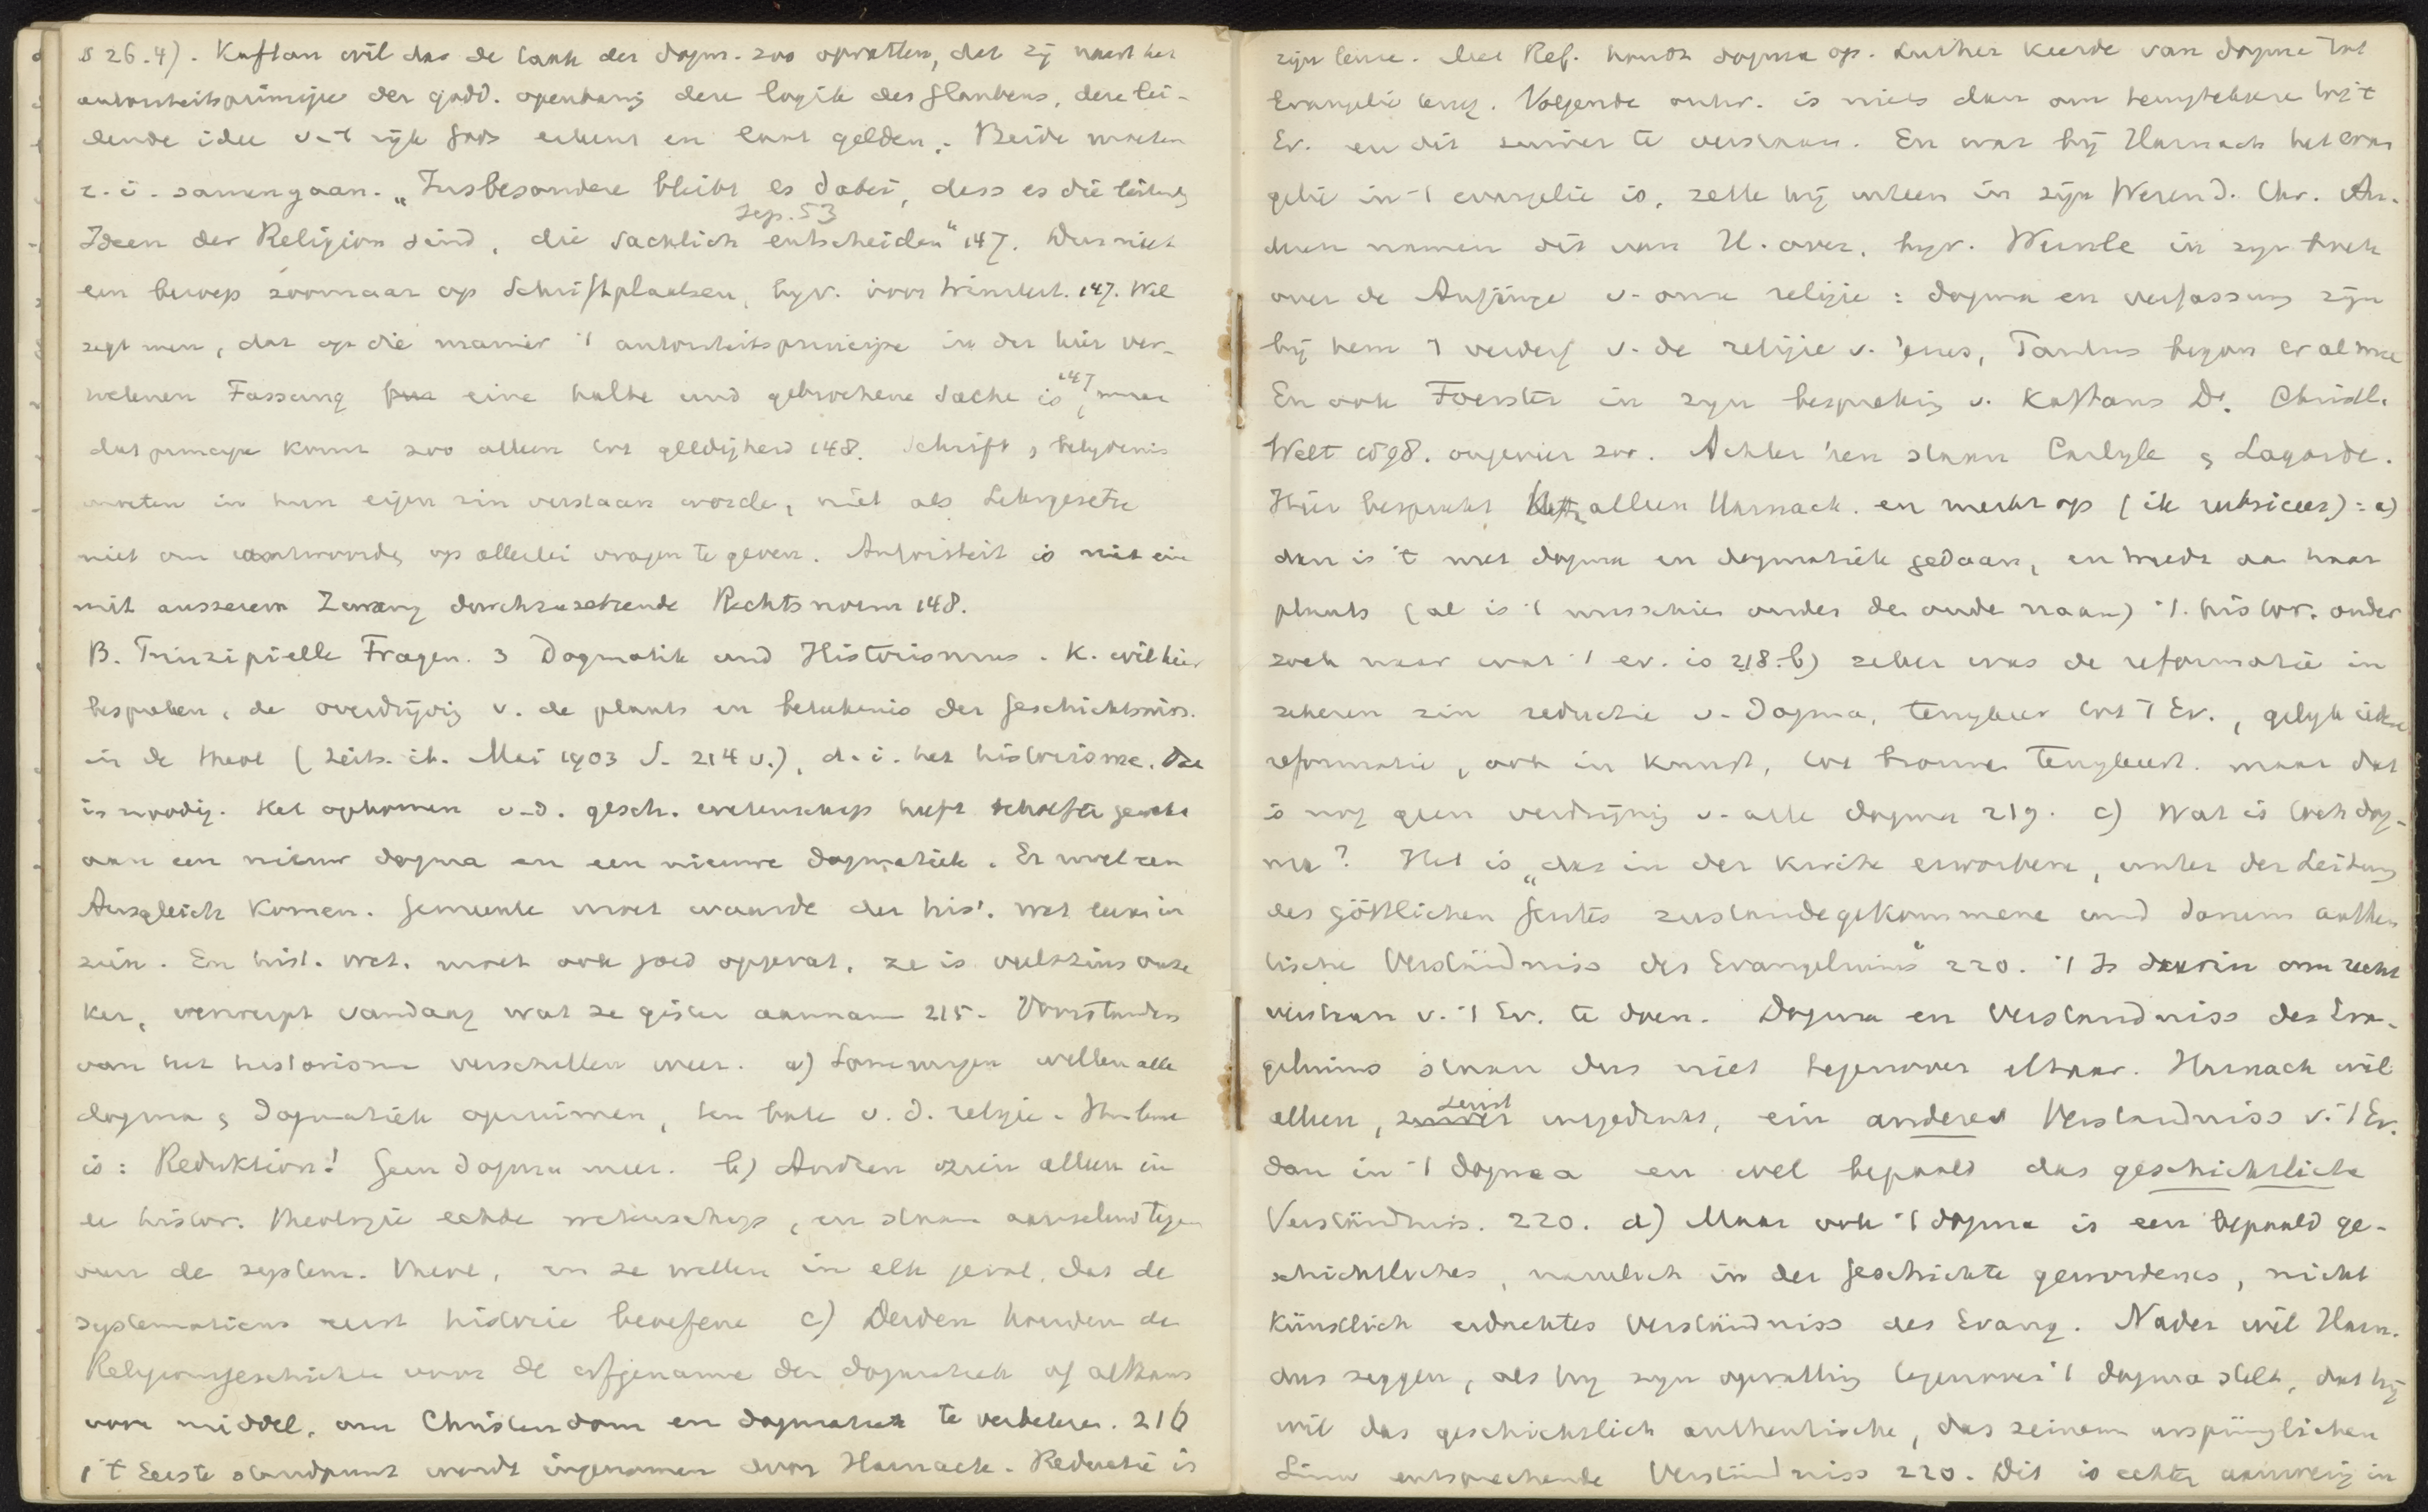 S 26.4). Kaftan wil dus de taak der dogm. zoo opvatten, dat zij naast het
autoriteitsprincipe der godd. openbaring deze logik des Glaubens, deze lei-
dende idee v-'t rijk Gods erkent en laat gelden. Beide moeten
z. i. samengaan. „Insbesondere bleibt es dabei, dass es die leitenden
Sep. 53
Ideen der Religion sind, die sachlich entscheiden" 147. Dus niet
een beroep zoomaar op Schriftplaatsen, bijv. voor 147. Wel
zegt men, dat op die manier 't autoriteitsprincipe in der hier ver-
tretenen Fassung eine halbe und gebrochene Sache is 147, maar
dat principe komt zoo alleen tot geldigheid 148. Schrift & belydenis
moeten in hun eigen zin verstaan worden, niet als Lehrgesetze
niet om antwoorden op allerlei vragen te geven. Autoriteit is nie ein
mit ausserem Zwang durchzusetzende Rechtsnorm 148.
B. Prinzipielle Fragen. 3 Dogmatik und Historismus. K. wil hier
bespreken, de overdrijving v. de plaats en betekenis der Geschichtswiss.
in de theol (Zeits. Mei 1903 S. 214 v.), d. i. het historisme. Dat
is noodig. Het opkomen v-d. gesch. wetenschap heeft behoefte gewekt
aan een nieuw dogma en een nieuwe dogmatiek. Er moet een
Ausgleich komen. Gemeente moet waarde der hist. wet leeren in
zien. En hist. wet. moet ook goed opgevat, ze is veelszins onze
ker, verwerpt vandaag wat ze gister aannam 215. Voorstanders
van het historisme verschillen weer. a) Sommigen willen alle
dogma & dogmatiek opruimen, ten bate v. d. religie. Hun leuze
is: Reduktion! Geen dogma meer. b) Andren zien alleen in
de histor. theologie echte wetenschap, en staan aarzelend tegen
over de system. theol, en ze willen in elk geval, dat de
systematicus eerst historie beoefene c) Derden houden de
Religionsgeschichte voor de erfgename der dogmatiek of althans
voor middel, om Christendom en dogmatiek te verbeteren. 216
't Eerste standpunt wordt ingenomen door Harnack. Reductie is
zijn leuze. Met Ref. houdt dogma op. Luther keerde van dogma tot
Evangelie terug. Volgende ontw. is niets dan om terugtekeeren tot 't
Ev. en dit zuiver te verstaan. En wat bij Harnack het evan
gelie in 't evangelie is, zette hij uiteen in zijn Wesen d. Chr. An-
dren namen dit van H. over, bijv. Wernle in zijn boek
over de Anfänge v- onze religie: dogma en verfassung zijn
bij hem 't verderf v. de religie v. Jezus, Paulus begon er al mee
En ook Foerster in zijn bespreking v. Kaftans D. Christl.
Welt 1898. ongeveer zoo. Achter hen staan Carlyle & Lagarde.
Hier bespreekt alleen Harnack. en merkt op (ik rubriceer): a)
dan is 't met dogma en dogmatiek gedaan, en treedt in haar
plaats (al is 't misschien onder de oude naam) 't histor. onder
zoek naar wat 't ev. is 218. b) zeker was de reformatie in
zekeren zin reductie v- Dogma, terugkeer tot 't Ev., gelijk iedere
reformatie, ook in kunst, tot bronnen terugkeert. maar dat
is nog geen verdwijning v- alle dogma 219. c) Wat is toch dog-
ma? Het is „das in der Kirche erworbene, unter der Leitung
des göttlichen Geistes zustandegekommene und darum authen
tische Verständniss des Evangeliums" 220. 't Is daarin om recht
verstaan v. 't Ev. te doen. Dogma en Verständniss des Evan-
geliums staan dus niet tegenover elkaar. Harnack wil
alleen, juist uitgedrukt, ein anderes Verständniss v. 't Ev.
dan in 't dogma en wel bepaald das geschichtliche
Verständniss. 220. d) Maar ook 't dogma is een bepaald ge-
schichtliches, namelich in der Geschichte gewordenes, nicht
künstlich erdachtes Verständniss des Evang. Nader wil Harn.
dus zeggen, als hij zijn opvatting tegenover 't dogma stelt, dat hij
wil das geschichtlich authentische, das seinem ursprünglichen
Sinn entsprechende Verständniss 220. Dit is echter aanwezig in